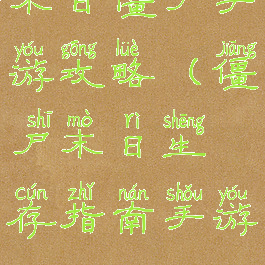 末日僵尸手
yóu gōng lüè jiāng
游攻略(僵
shī mò rì shēng
尸末日生
cún zhǐ nán shǒu yóu
存指南手游